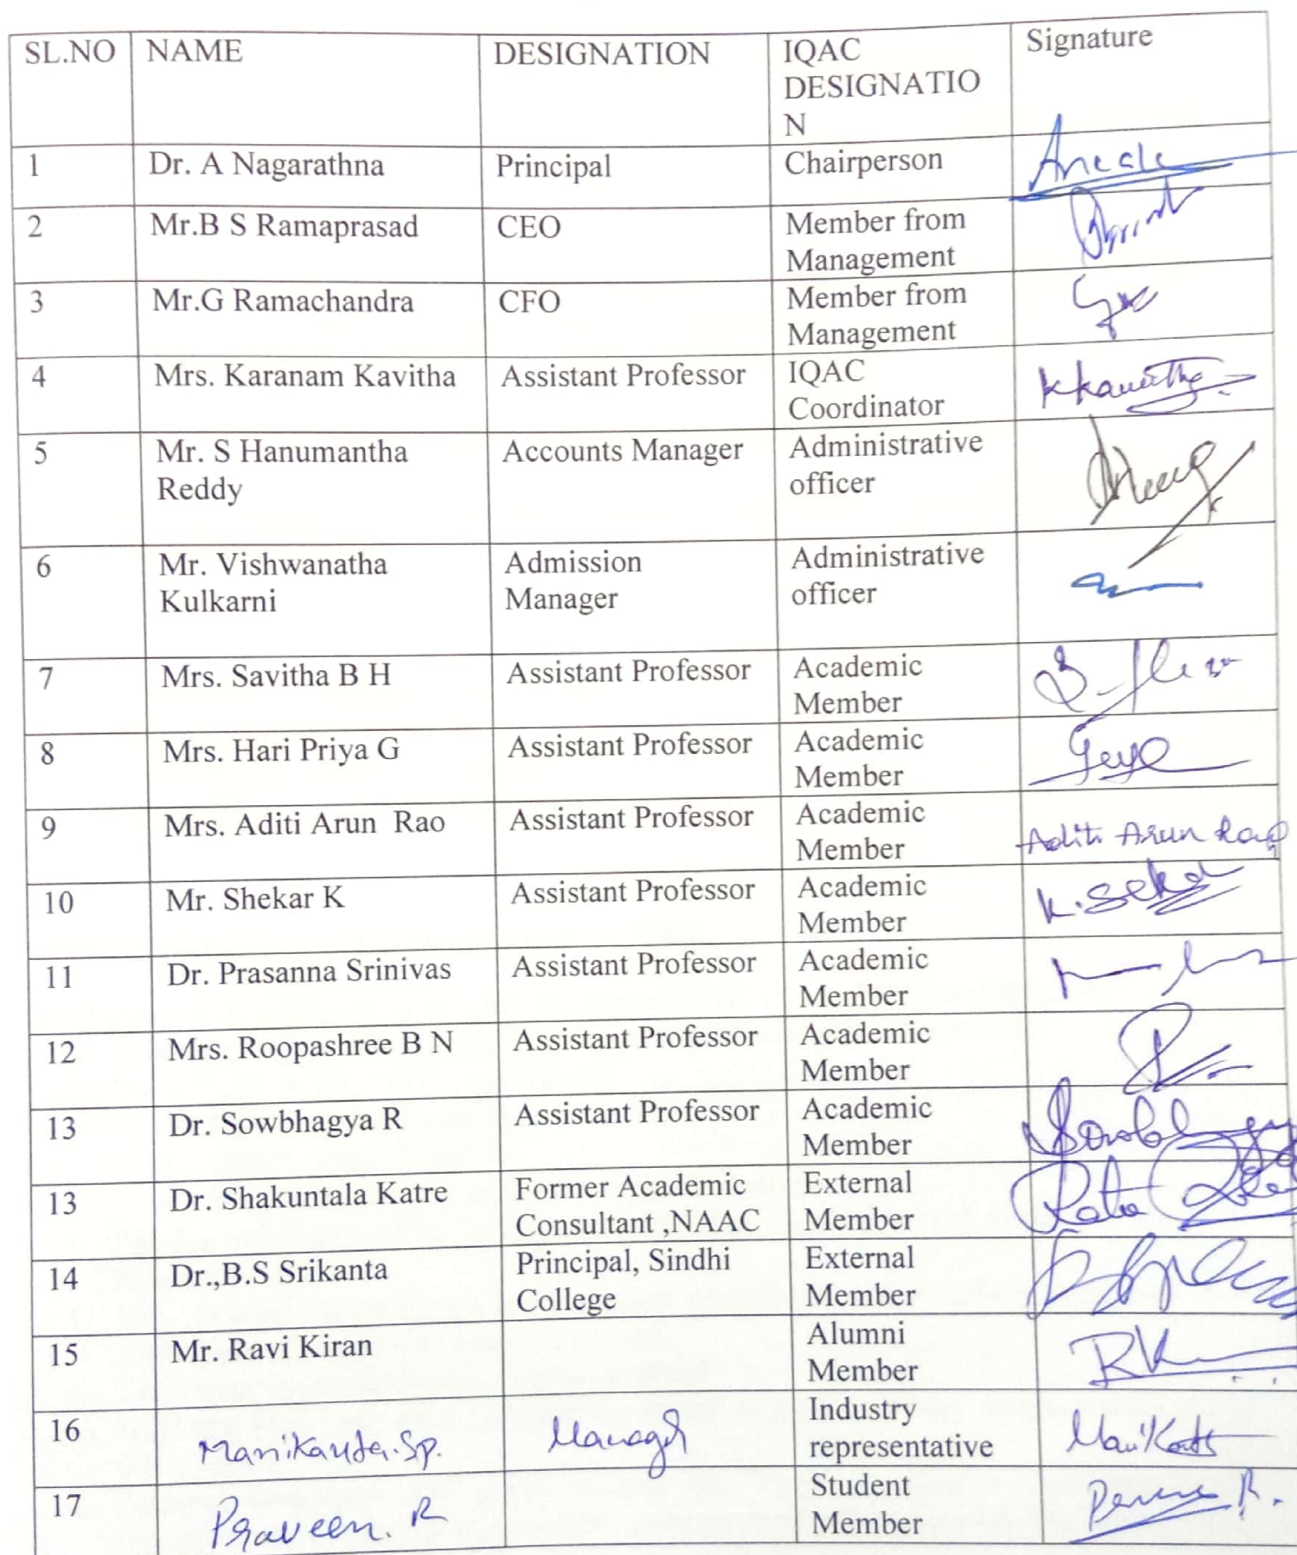 SL.NO NAME DESIGNATION IQAC DESIGNATIO N Signature
1 Dr. A Nagarathna Principal Chairperson
2 Mr.B S Ramaprasad CEO Member from Management
3 Mr.G Ramachandra CFO Member from Management
4 Mrs. Karanam Kavitha Assistant Professor IQAC Coordinator KKavitha
5 Mr. S Hanumantha Reddy Accounts Manager Administrative officer
6 Mr. Vishwanatha Kulkarni Admission Manager Administrative officer
7 Mrs. Savitha B H Assistant Professor Academic Member
8 Mrs. Hari Priya G Assistant Professor Academic Member
9 Mrs. Aditi Arun Rao Assistant Professor Academic Member Aditi Arun Rao
10 Mr. Shekar K Assistant Professor Academic Member
11 Dr. Prasanna Srinivas Assistant Professor Academic Member
12 Mrs. Roopashree B N Assistant Professor Academic Member
13 Dr. Sowbhagya R Assistant Professor Academic Member
13 Dr. Shakuntala Katre Former Academic Consultant ,NAAC External Member
14 Dr.,B.S Srikanta Principal, Sindhi College External Member
15 Mr. Ravi Kiran Alumni Member
16 Manikanta.Sp. Manager Industry representative
17 Praveen. R Student Member